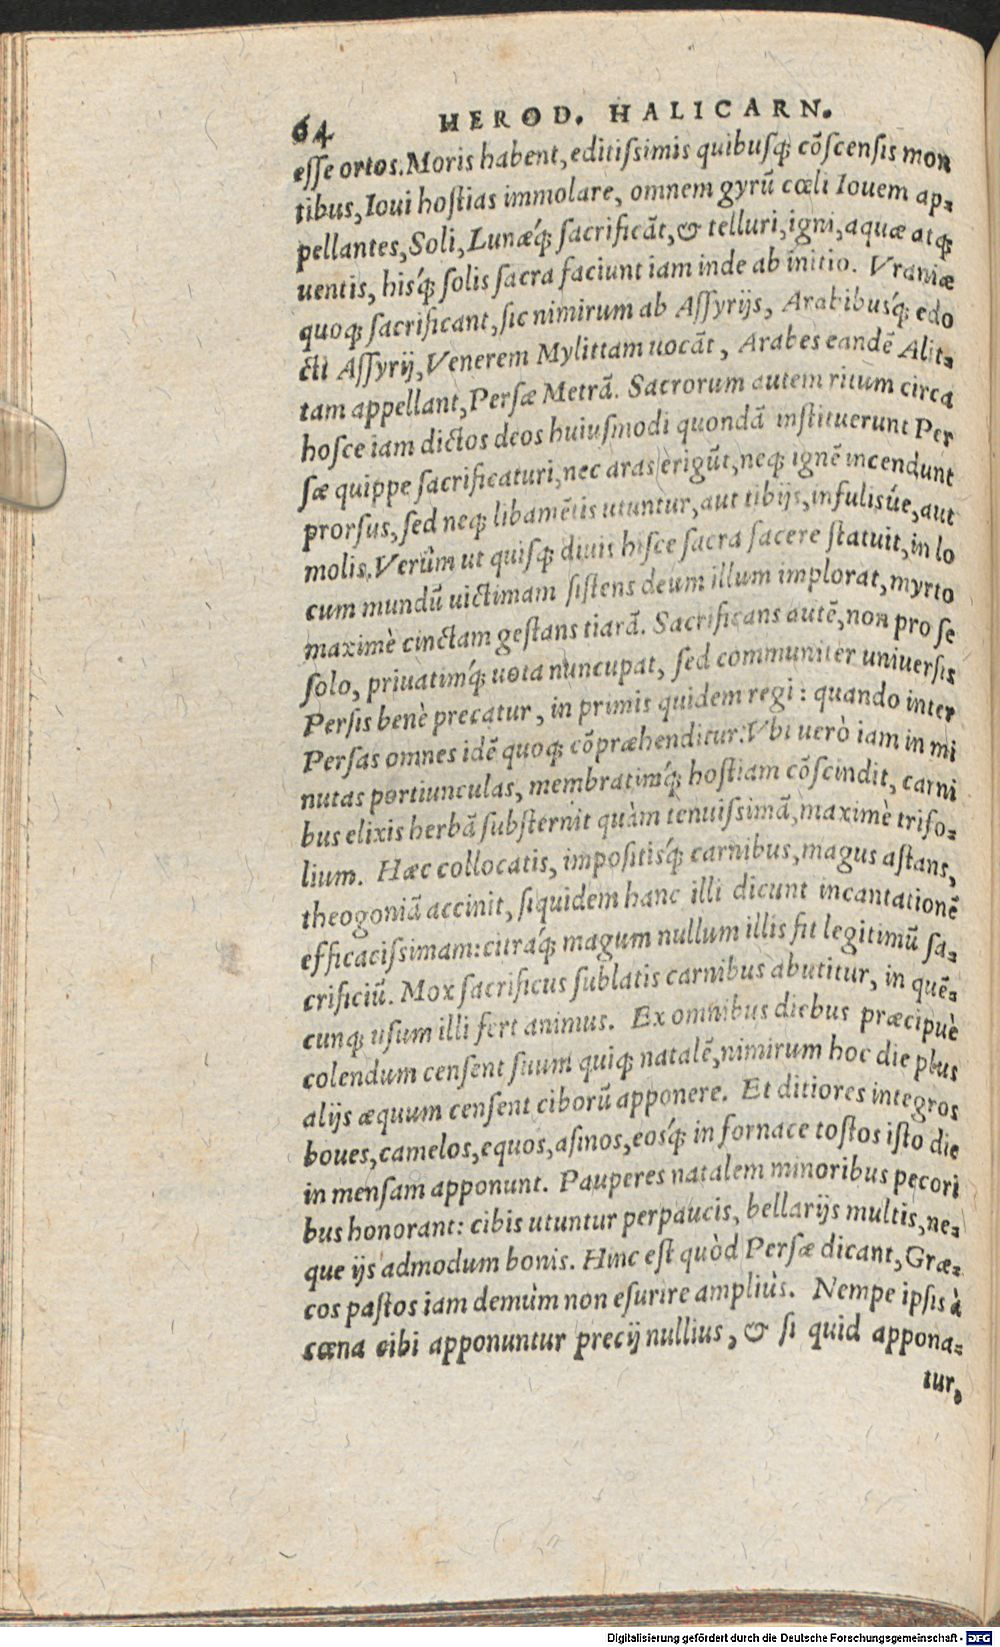 64 HEROD. HALICARN.
eſſe ortos. Moris habent, editiſsimis quibuſq; cõſcenſis mon
tibus, Ioui hoſtias immolare, omnem gyrũ cœli Iouem ap⸗
pellantes, Soli, Lunæq́; ſacrificãt, & telluri, igni, aquæ atq;
uentis, hisq́; ſolis ſacra faciunt iam inde ab initio. Vraniæ
quoq; ſacrificant, ſic nimirum ab Aſſyrijs, Arabibusq́; edo
cti Aſſyrij, Venerem Mylittam uocãt, Arabes eandẽ Alit⸗
tam appellant, Perſæ Metrã. Sacrorum autem ritum circa
hoſce iam dictos deos huiuſmodi quondã inſtituerunt Per
ſæ quippe ſacrificaturi, nec aras erigũt, neq; ignẽ incendunt
prorſus, ſed neq; libamẽtis utuntur, aut tibijs, infulisúe, aut
molis. Verûm ut quiſq; diuis hiſce ſacra facere ſtatuit, in lo
cum mundũ uictimam ſiſtens deum illum implorat, myrto
maximè cinctam geſtans tiarã. Sacrificans autẽ, non pro ſe
ſolo, priuatimq́; uota nuncupat, ſed communiter uniuerſis
Perſis benè precatur, in primis quidem regi: quando inter
Perſas omnes idẽ quoq; cõpræhenditur. Vbi uerò iam in mi
nutas portiunculas, membratimq́; hoſtiam cõſcindit, carni
bus elixis herbã ſubſternit quàm tenuiſsimã, maximè trifo⸗
lium. Hæc collocatis, impoſitisq́; carnibus, magus aſtans,
theogoniã accinit, ſiquidem hanc illi dicunt incantationẽ
efficaciſsimam: citraq́; magum nullum illis fit legitimũ ſa⸗
crificiũ. Mox ſacrificus ſublatis carnibus abutitur, in quẽ⸗
cunq; uſum illi fert animus. Ex omnibus diebus præcipuè
colendum cenſent ſuum quiq; natalẽ, nimirum hoc die plus
alijs æquum cenſent ciborũ apponere. Et ditiores integros
boues, camelos, equos, aſinos, eosq́; in fornace toſtos iſto die
in menſam apponunt. Pauperes natalem minoribus pecori
bus honorant: cibis utuntur perpaucis, bellarijs multis, ne⸗
que ijs admodum bonis. Hinc eſt quòd Perſæ dicant, Græ⸗
cos paſtos iam demùm non eſurire ampliùs. Nempe ipſis à
cœna cibi apponuntur precij nullius, & ſi quid appona⸗
tur,
Digitalisierung gefördert durch die Deutsche Forschungsgemeinschaft - DFG